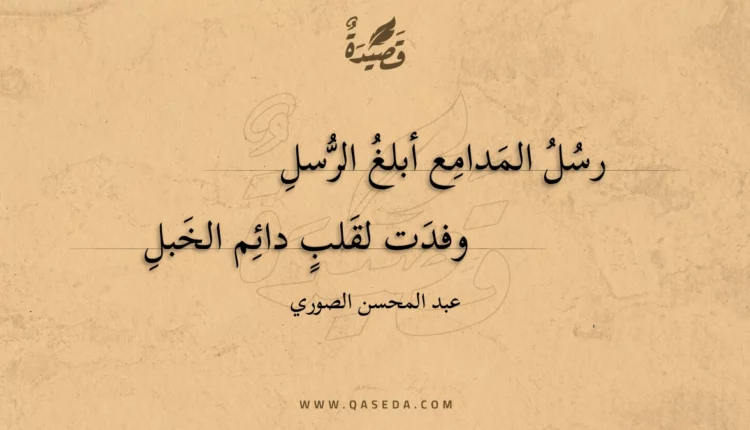 قَصِيْدَةٌ
رسُلُ المَدامِع أبلغُ الرُّسلِ
وفدَت لقَلبٍ دائِم الخَبلِ
عبد المحسن الصوري
WWW.QASEDA.COM